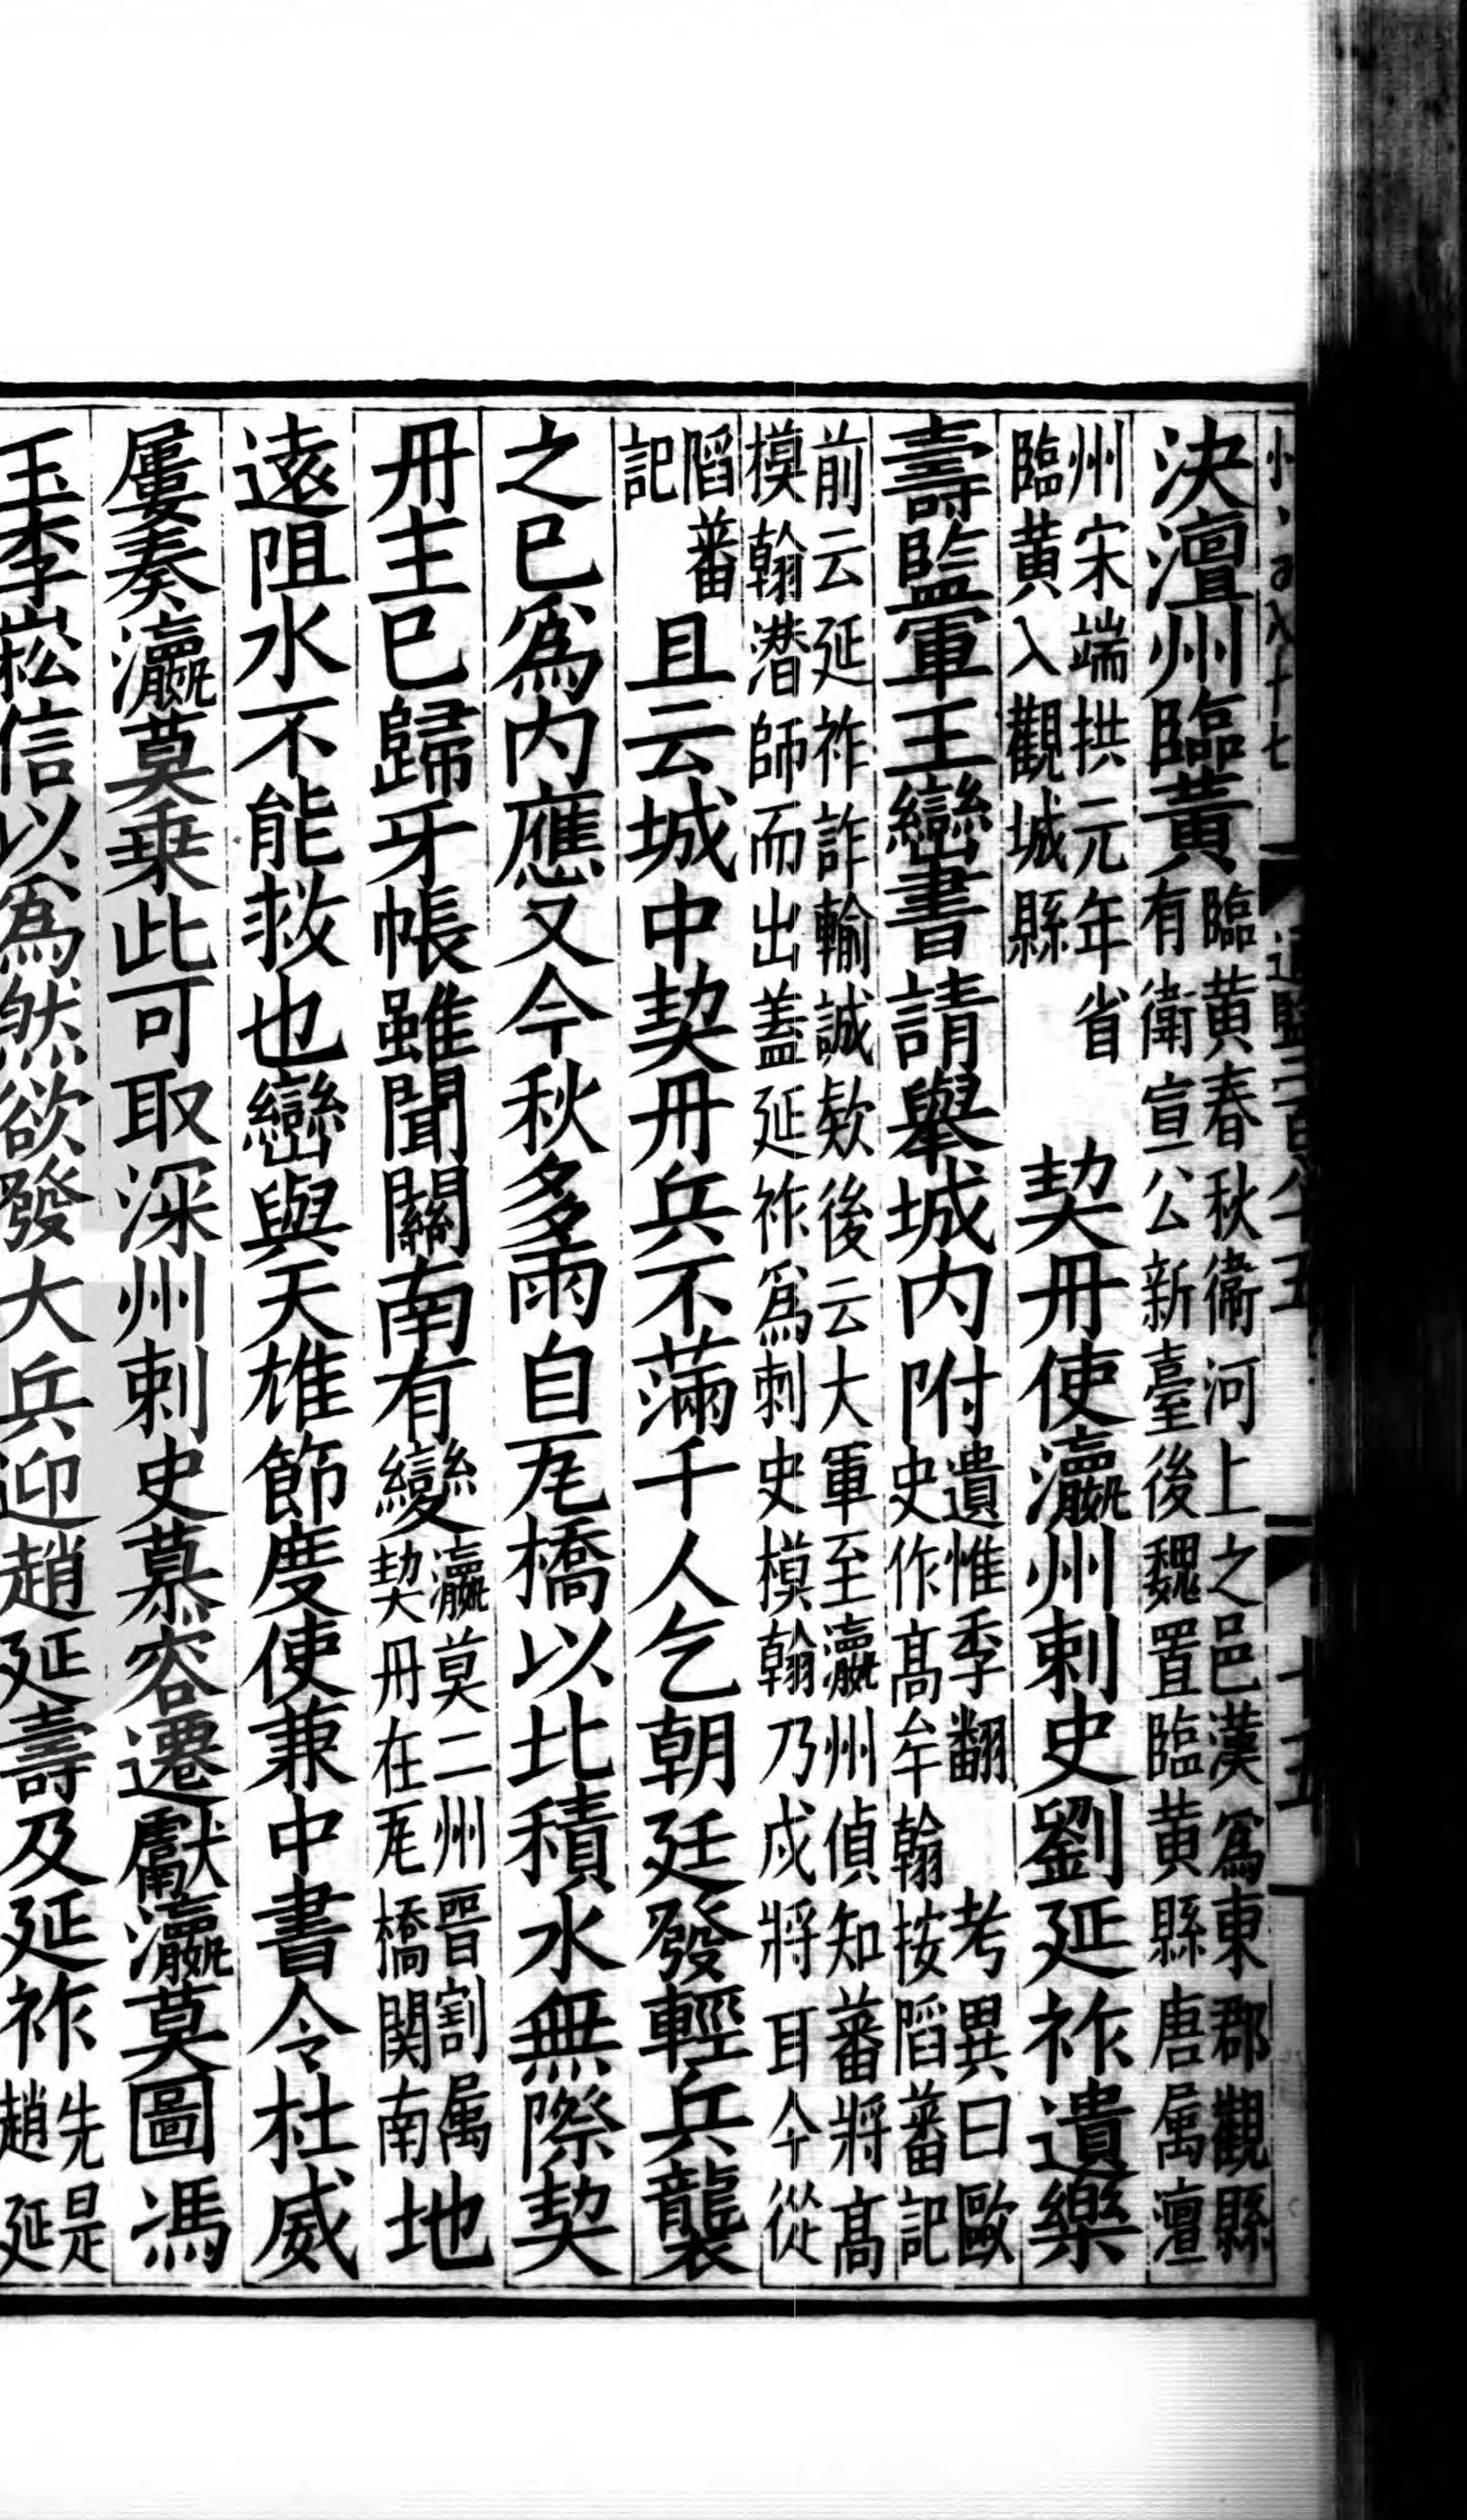 決澶州臨黃臨黄春秋衞河上之邑漢爲東郡觀縣有衛宣公新臺後魏置臨黄縣唐属澶
州宋端拱元年省臨黄入觀城縣契丹使瀛州刺史劉延祚遺樂
壽監軍王巒書請舉城内附遺惟季翻史作高牟翰考異曰歐按䧟蕃記
前云延祚詐輸誠欵後云大軍至瀛州偵知蕃將高模翰潜師而出蓋延祚爲刺史模翰乃戍將耳今從
䧟蕃記且云城中契丹兵不滿千人乞朝廷發輕兵襲
之已爲内應又今秋多雨自瓦橋以北積水無際契
丹主已歸牙帳雖聞關南有變瀛莫二州晋割属契丹在瓦橋関南地
遠阻水不能救也巒與天雄節度使兼中書令杜威
屢奏瀛莫乗此可取深州刺史慕容遷獻瀛莫圖馮
玉李崧信以爲然欲發大兵迎趙延壽及延祚先是趙延